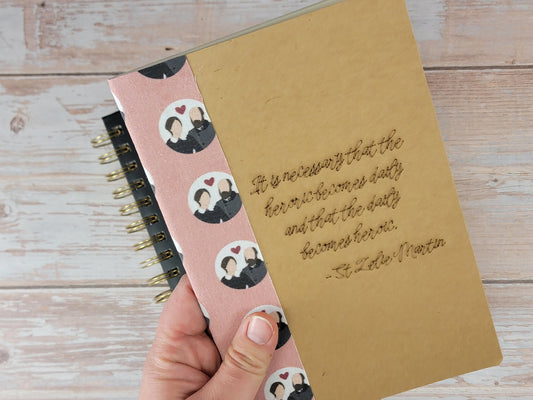 It is necessary that the
heroric becomes daily
and that the daily
becomes heroic.
-St Zelie Martin